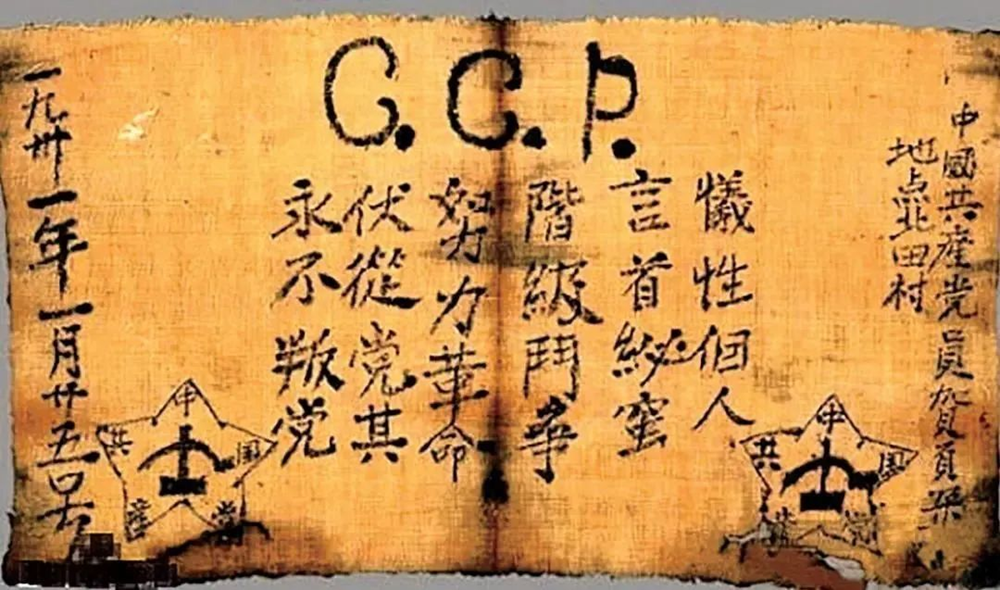 C.C.P.
中國共產党員
地点北田村
犧性個人
言首秘蜜
階級鬥爭
努力革命
伏從党其
永不叛党
一九卅一年一月廿五
中国共
中国共產党